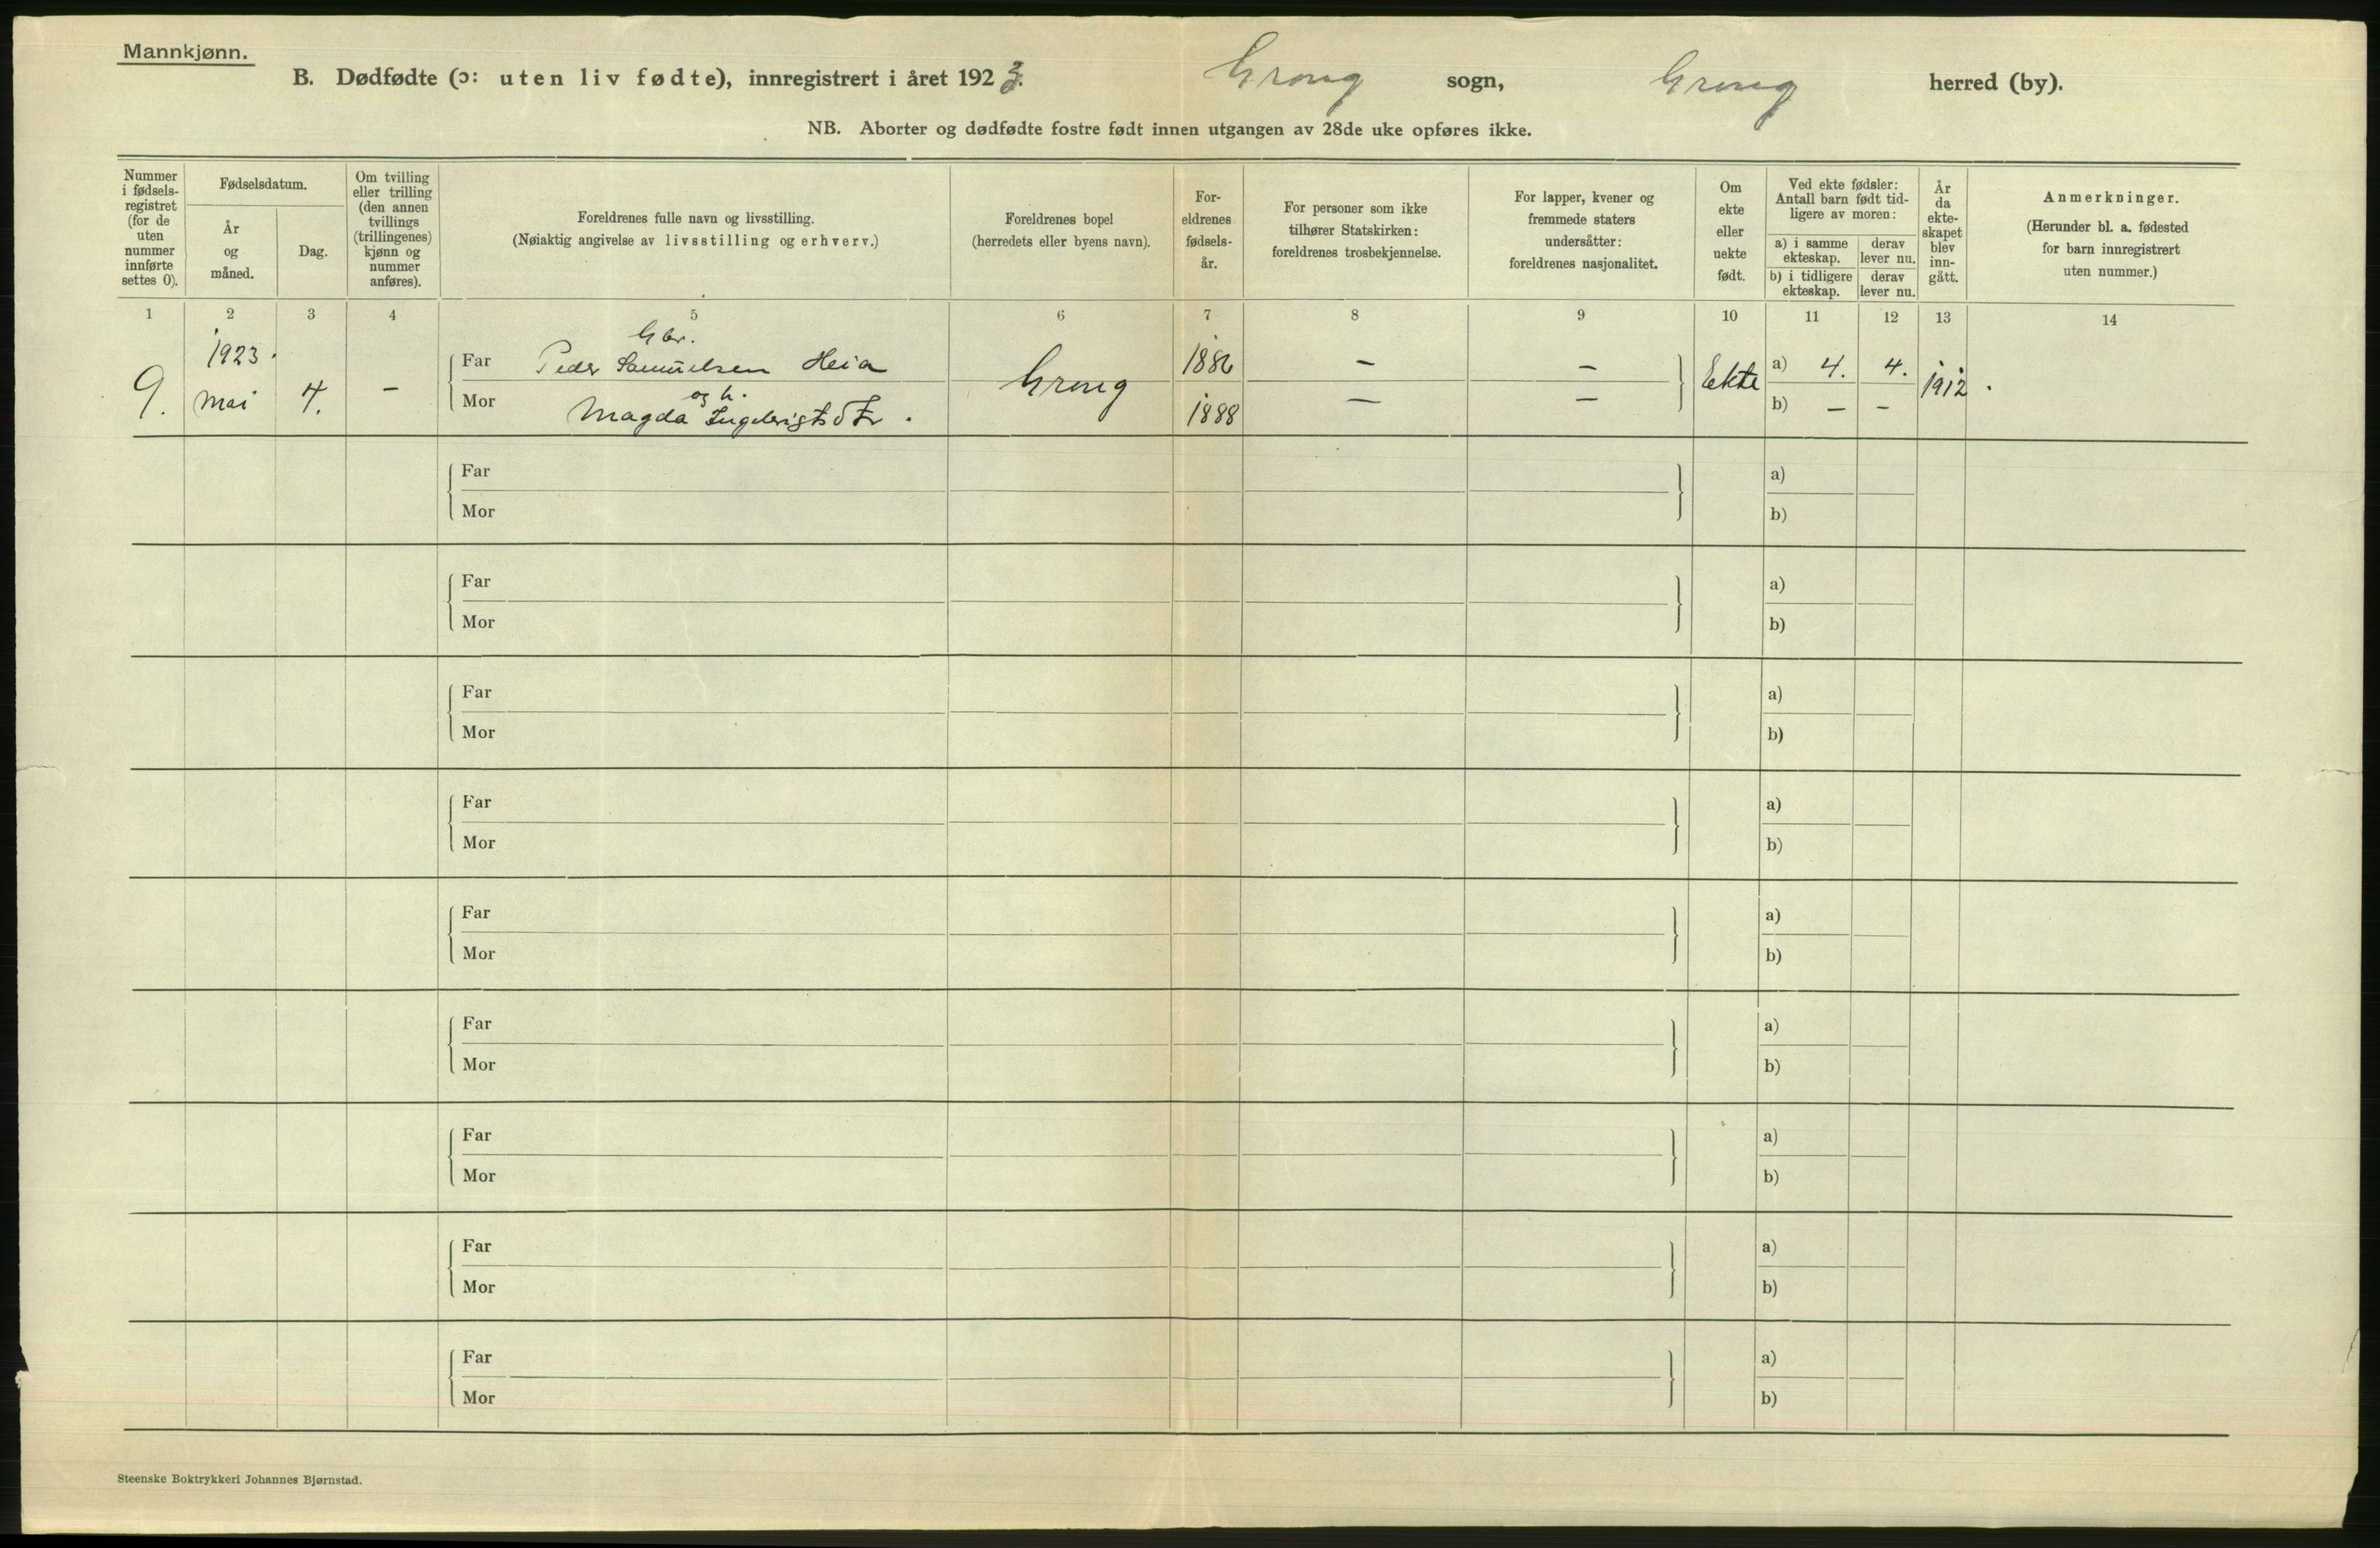 Mannkjønn.
B. Dødfødte (ɔ: uten liv fødte), innregistrert i året 1923. Grong sogn, Grong herred (by).
NB. Aborter og dødfødte fostre født innen utgangen av 28de uke opføres ikke.
Nummer i fødsels-registret (for de uten nummer innførte settes 0).
Fødselsdatum.
År og måned.
Dag.
Om tvilling eller trilling (den annen tvillings (trillingenes) kjønn og nummer anføres).
Foreldrenes fulle navn og livsstilling.
(Nøiaktig angivelse av livsstilling og erhverv.)
Foreldrenes bopel
(herredets eller byens navn).
For-eldrenes fødsels-år.
For personer som ikke tilhører Statskirken: foreldrenes trosbekjennelse.
For lapper, kvener og fremmede staters undersåtter: foreldrenes nasjonalitet.
Om ekte eller uekte født.
Ved ekte fødsler: Antall barn født tid-ligere av moren:
a) i samme ekteskap.
derav lever nu.
b) i tidligere ekteskap.
derav lever nu.
År da ekte-skapet blev inn-gått.
Anmerkninger.
(Herunder bl. a. fødested for barn innregistrert uten nummer.)
1 2 3 4 5 6 7 8 9 10 11 12 13 14
9. 1923. Mai 4. –
Gbr.
Far Peder Samuelsen Heia
og h.
Mor Magda Ingebrigtsdtr.
Grong
1886 – –
1888 – –
Ekte
a) 4. 4.
b) – –
1912.
Far a)
Mor b)
Far a)
Mor b)
Far a)
Mor b)
Far a)
Mor b)
Far a)
Mor b)
Far a)
Mor b)
Far a)
Mor b)
Far a)
Mor b)
Far a)
Mor b)
Steenske Boktrykkeri Johannes Bjørnstad.